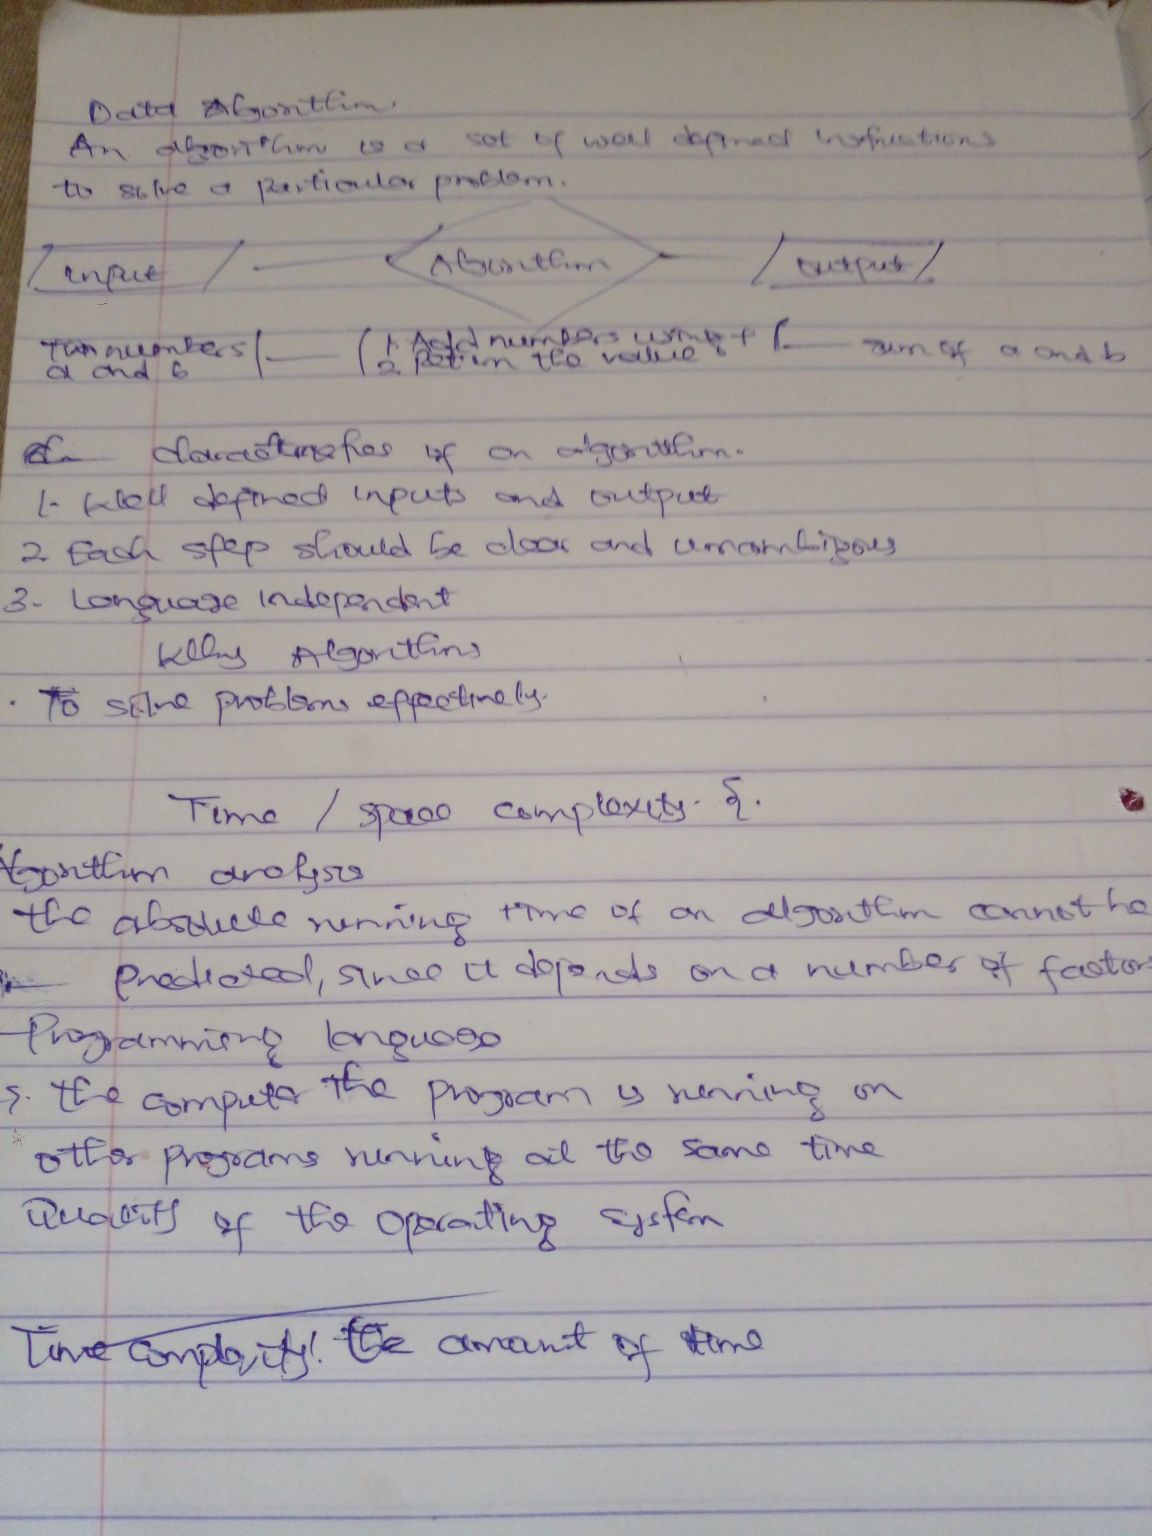 Data Algorithm.
An algorithm is a set of well defined instructions
to solve a particular problem.
Input Algorithm Output
Two numbers a and b
1. Add numbers using +
2. Return the value
sum of a and b
characteristics of an algorithm.
1. Well defined inputs and output
2 Each step should be clear and unambigous
3. Language independent
Why Algorithms
. To solve problems effectively.
Time / space complexity.
Algorithm analysis
the absolute running time of an algorithm cannot be
predicted, since it depends on a number of factors
- Programming language
. the computer the program is running on
other programs running at the same time
Quality of the operating system
Time complexity! The amount of time